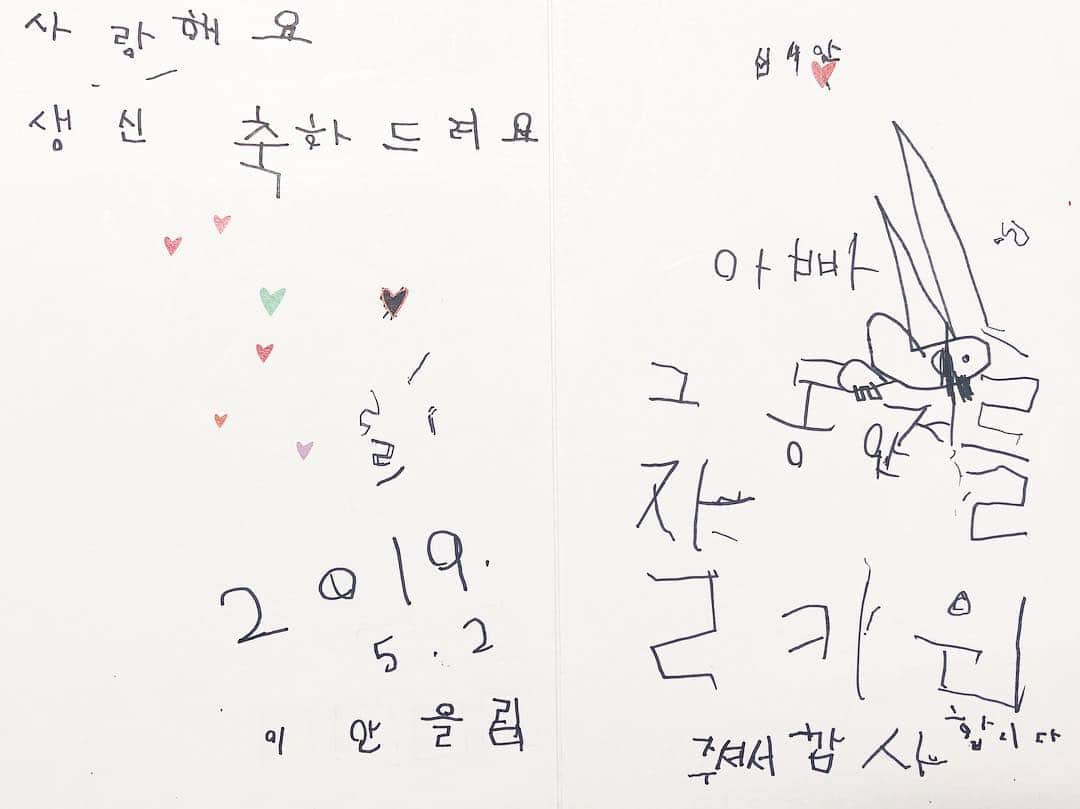 사랑해요
생신 축하드려요
2019.
5.2
이안올림
아빠
그동안 저를
잘 키워
주셔서 감사합니다